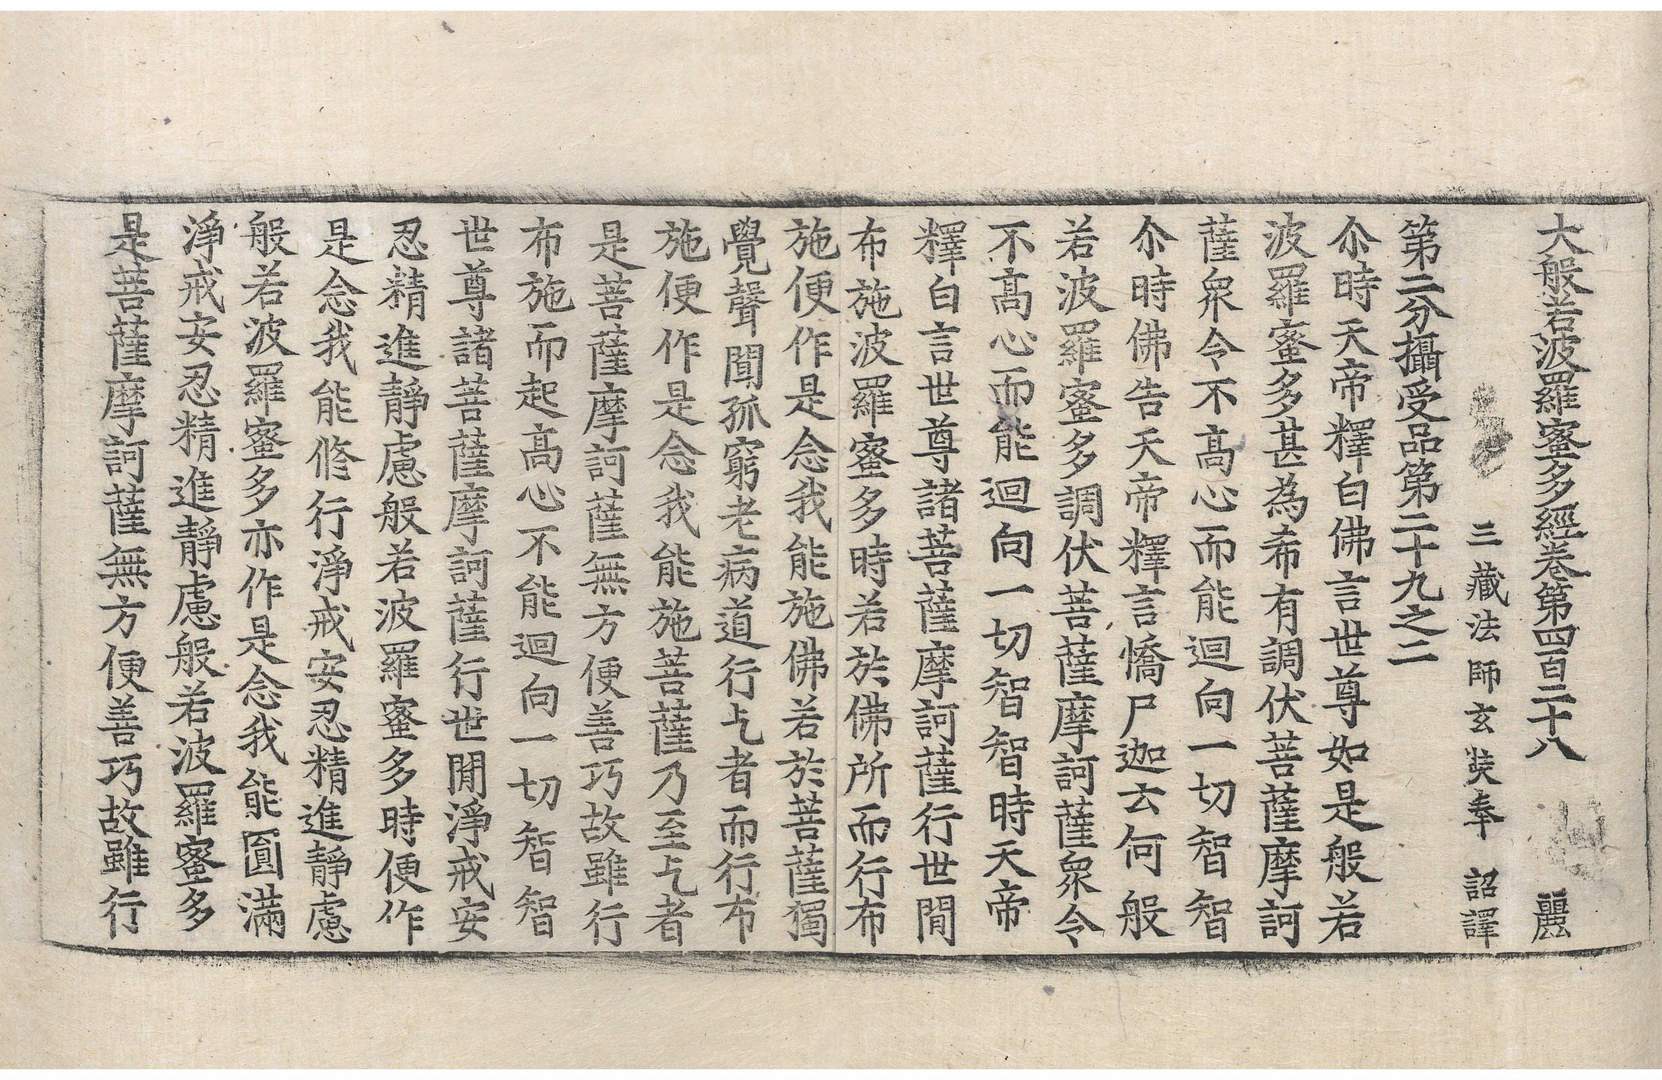 大般若波羅蜜多經卷第四百二十八 麗
三藏法師玄奘奉 詔譯
第二分攝受品第二十九之二
尒時天帝釋白佛言世尊如是般若
波羅蜜多甚為希有調伏菩薩摩訶
薩衆令不髙心而能迴向一切智智
尒時佛告天帝釋言憍尸迦云何般
若波羅蜜多調伏菩薩摩訶薩衆令
不髙心而能迴向一切智智時天帝
釋白言世尊諸菩薩摩訶薩行世閒
布施波羅蜜多時若於佛所而行布
施便作是念我能施佛若於菩薩獨
覺聲聞孤窮老病道行乞者而行布
施便作是念我能施菩薩乃至乞者
是菩薩摩訶薩無方便善巧故雖行
布施而起髙心不能迴向一切智智
世尊諸菩薩摩訶薩行世閒淨戒安
忍精進靜慮般若波羅蜜多時便作
是念我能修行淨戒安忍精進靜慮
般若波羅蜜多亦作是念我能圓滿
淨戒安忍精進靜慮般若波羅蜜多
是菩薩摩訶薩無方便善巧故雖行